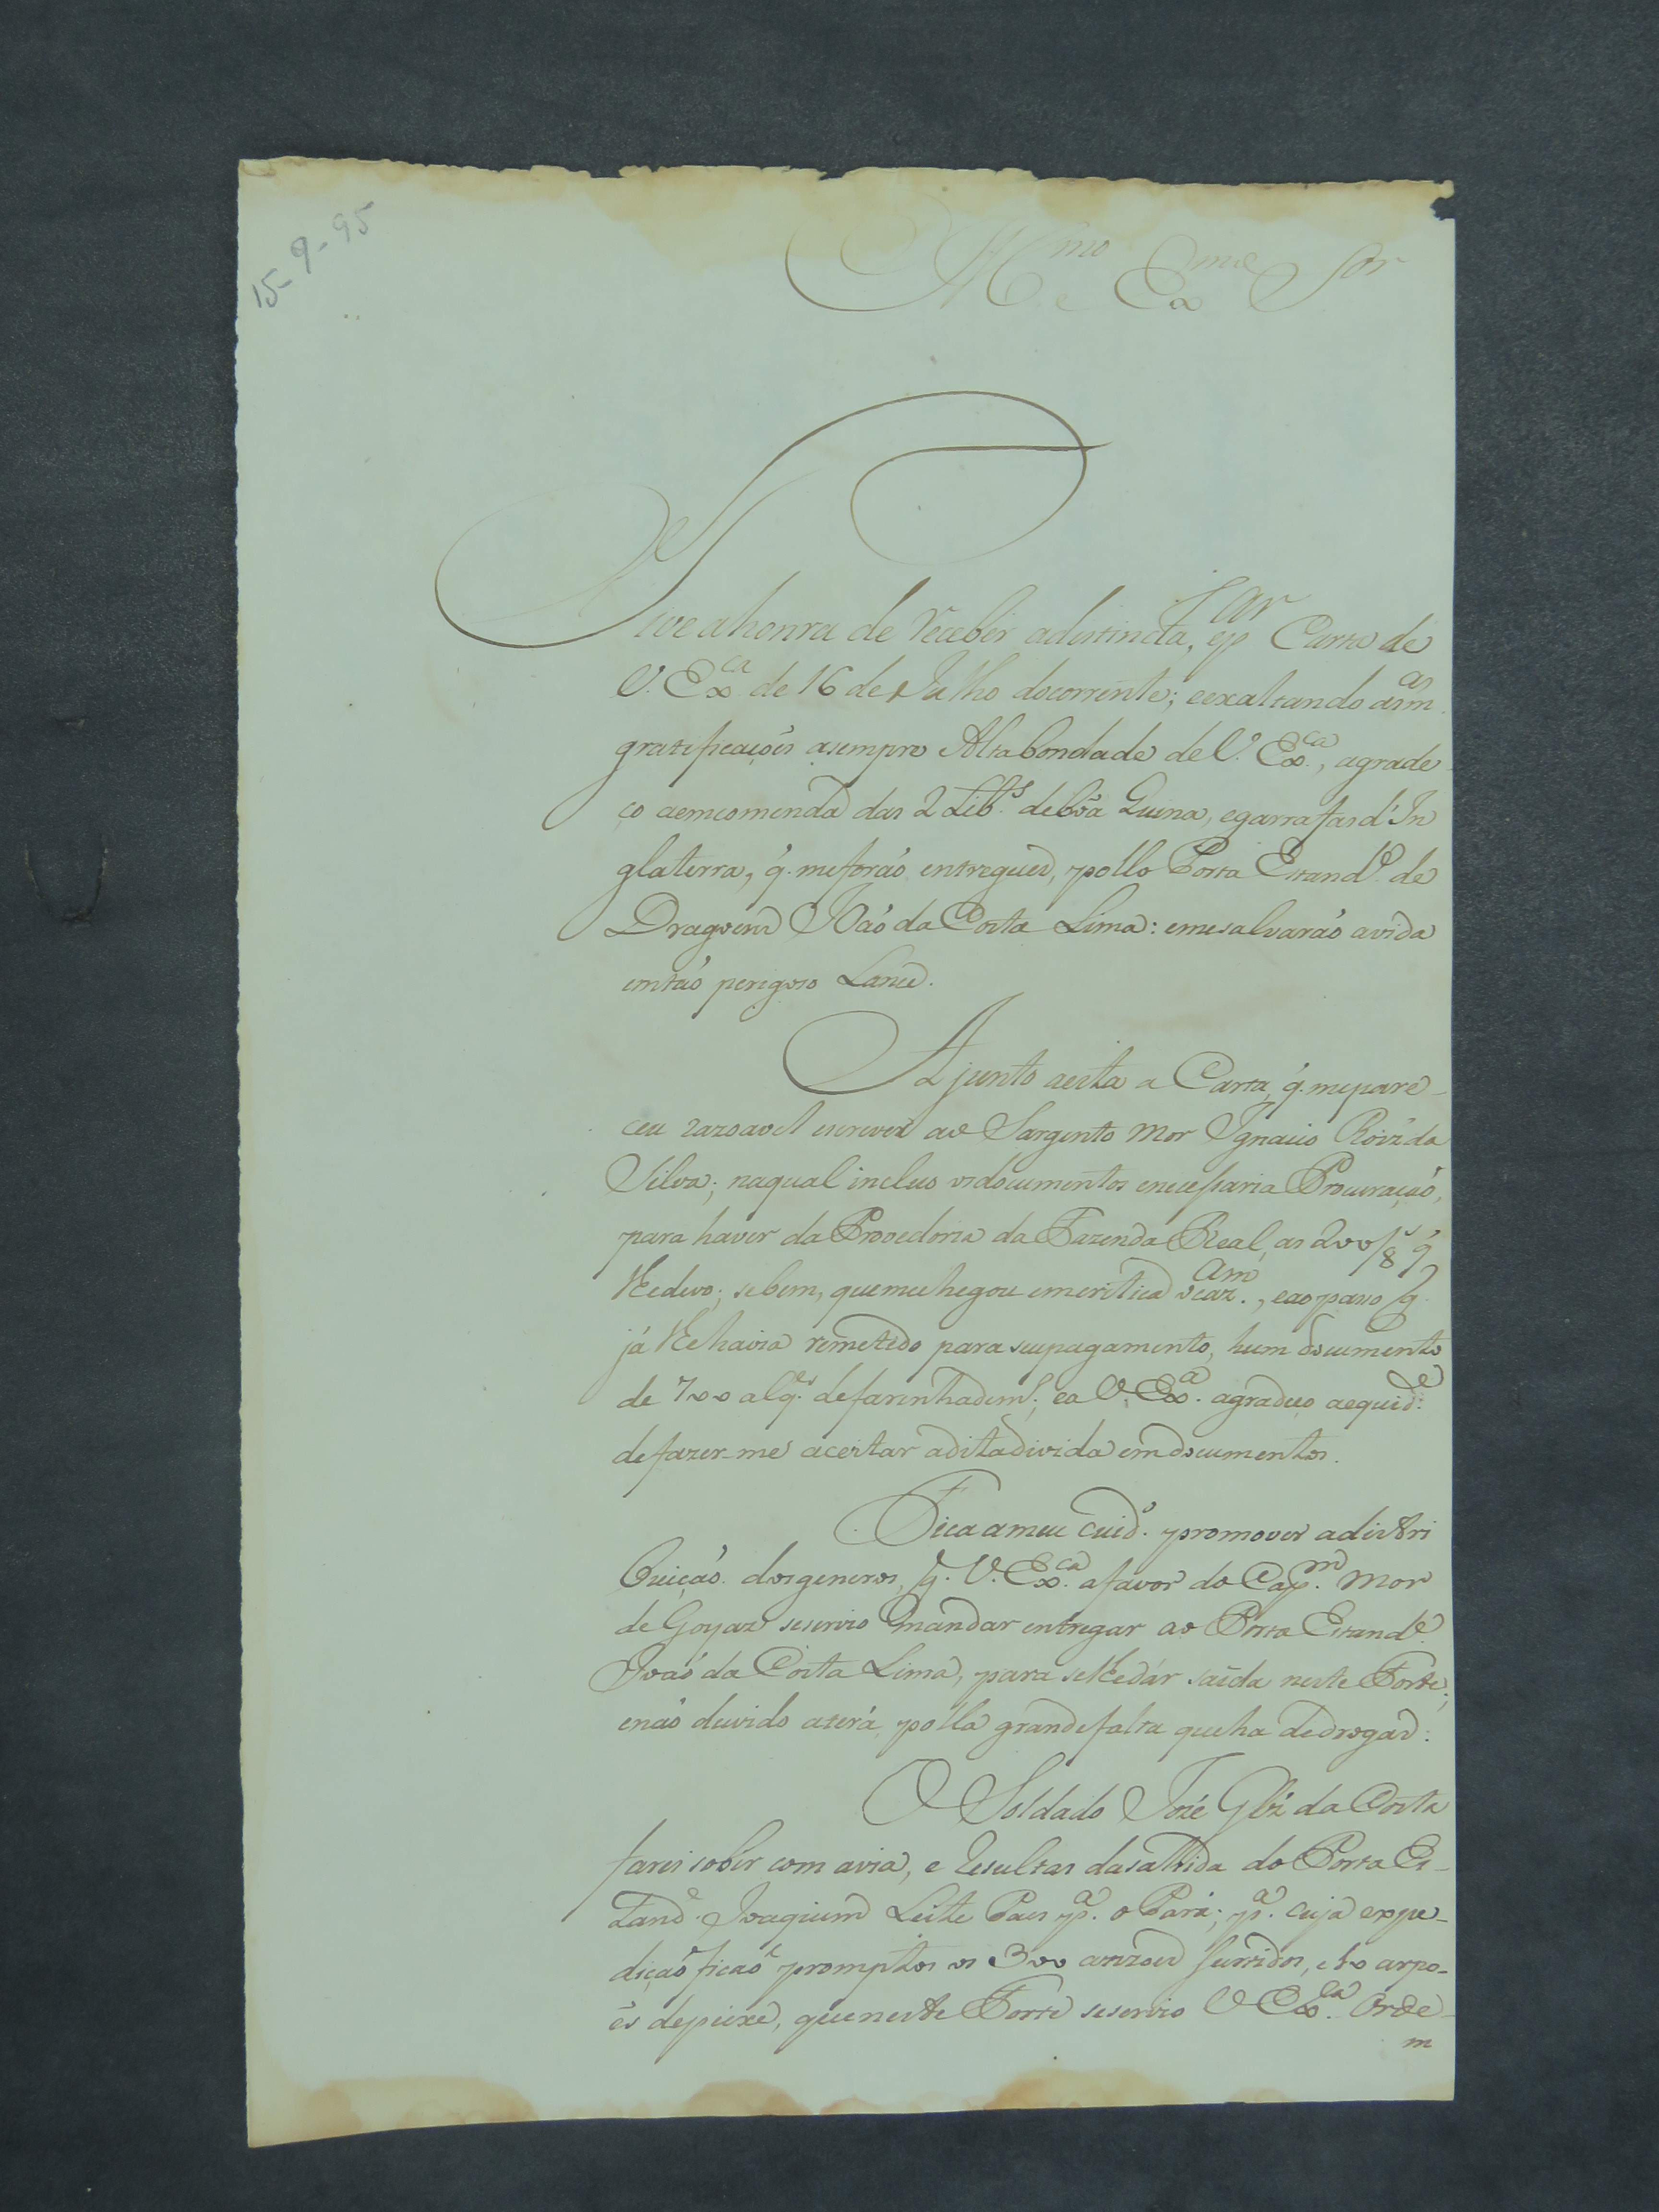 15-9-95
Ill.mo e Ex.mo S.or
Tive a honra de receber a distincta, e p.ar Carta de
V. Ex.ca de 16 de Julho do corrente; e exaltando as m.as
gratificaçoẽs a sempre Alta bondade de V. Ex.ca, agrade
ço a emcomenda das 2 Lib.s de bõa Quina, e garrafas d'In
glaterra, q̃. me forão entregues, pollo Porta Estand.e de
Dragoens João da Costa Lima: e me salvarão a vida
em tão perigoso Lance.
Ajunto a esta a Carta, q̃. me pare-
ceu razoavel escrever ao Sargento Mor Ignacio Roiz̃ da
Silva; na qual incluo os documentos e necessaria Procuração,
para haver da Provedoria da Fazenda Real, as 200/8.s q̃
lhe devo; se bem, que me chegou em critica , e ao passo q̃.
já lhe havia remetido para seu pagamento, hum documento
de 700 alq.es de farinha de m.; e a V. Ex.a agradeço a equid.e
de fazer-me aceitar a dita divida em documentos.
Fica a meu cuid.o promover a distri
buição dos generos, q̃. V. Ex.ca a favor do Cap.m Mor
de Goyaz se servio mandar entregar ao Porta Estand.e
João da Costa Lima, para se lhe dár saída neste Forte;
e não duvido a terá, polla grande falta que ha de drogas:
O Soldado José Glz̃ da Costa
farei sobir com a via, e resultas da sahida do Porta Es-
tand.e Joaquim Leite Paes p.a o Pará; p.a cuja expe-
dição ficão promptos os 300 surtidos, e arpo-
ẽs de peixe, que neste Forte se servio V. Ex.ca Orde-
m